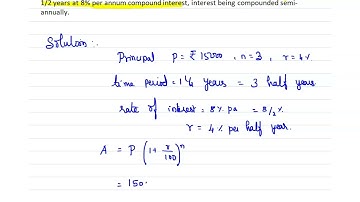 1/2 years at 8% per annum compound interest, interest being compounded semi-
annually.
Solution :.
Principal P = ₹ 15000, n = 3, r = 4%
time period = 1 1/2 years = 3 half years
rate of interest = 8% pa = 8/2 %
r = 4% per half year.
A = P (1 + r/100)^n
= 150.